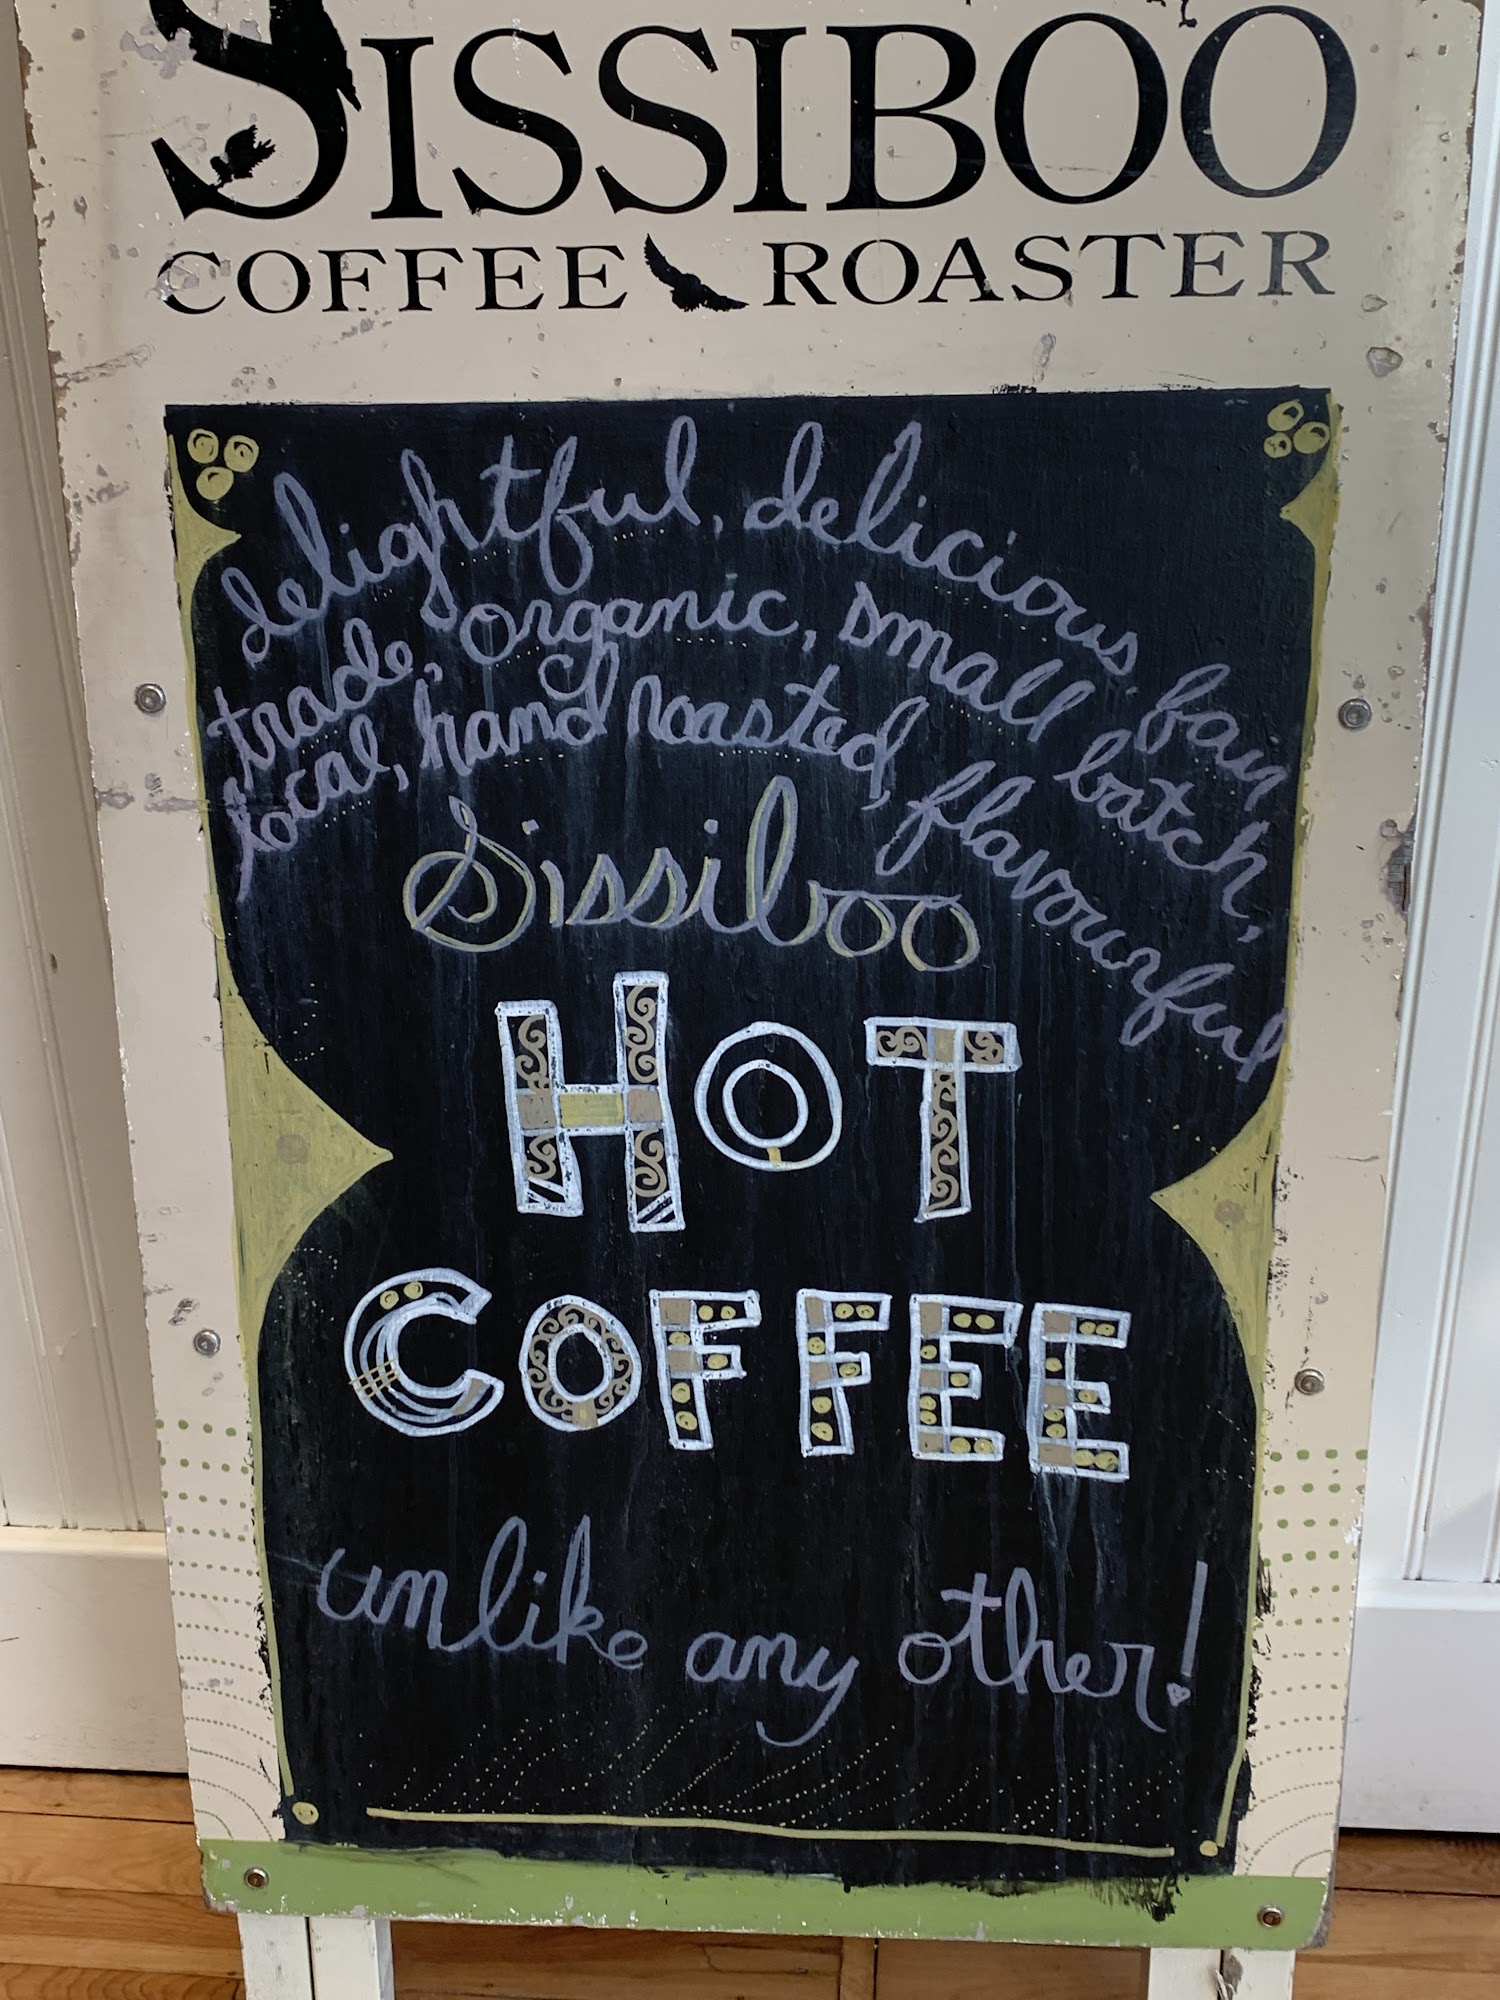 SISSIBOO
COFFEE ROASTER
delightful, delicious, fair
trade, organic, small batch,
local, hand roasted, flavourful
Sissiboo
HOT
COFFEE
unlike any other!